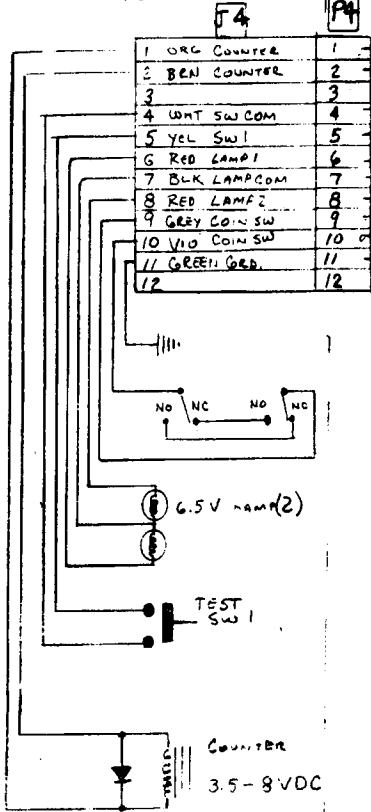 J4 P4
1 ORG COUNTER 1
2 BRN COUNTER 2
3 3
4 WHT SW COM 4
5 YEL SW 1 5
6 RED LAMP 1 6
7 BLK LAMP COM 7
8 RED LAMP 2 8
9 GREY COIN SW 9
10 VIO COIN SW 10
11 GREEN GRD. 11
12 12
NO NC NO NC
6.5 V LAMP (2)
TEST
SW 1
COUNTER
3.5-8 VDC